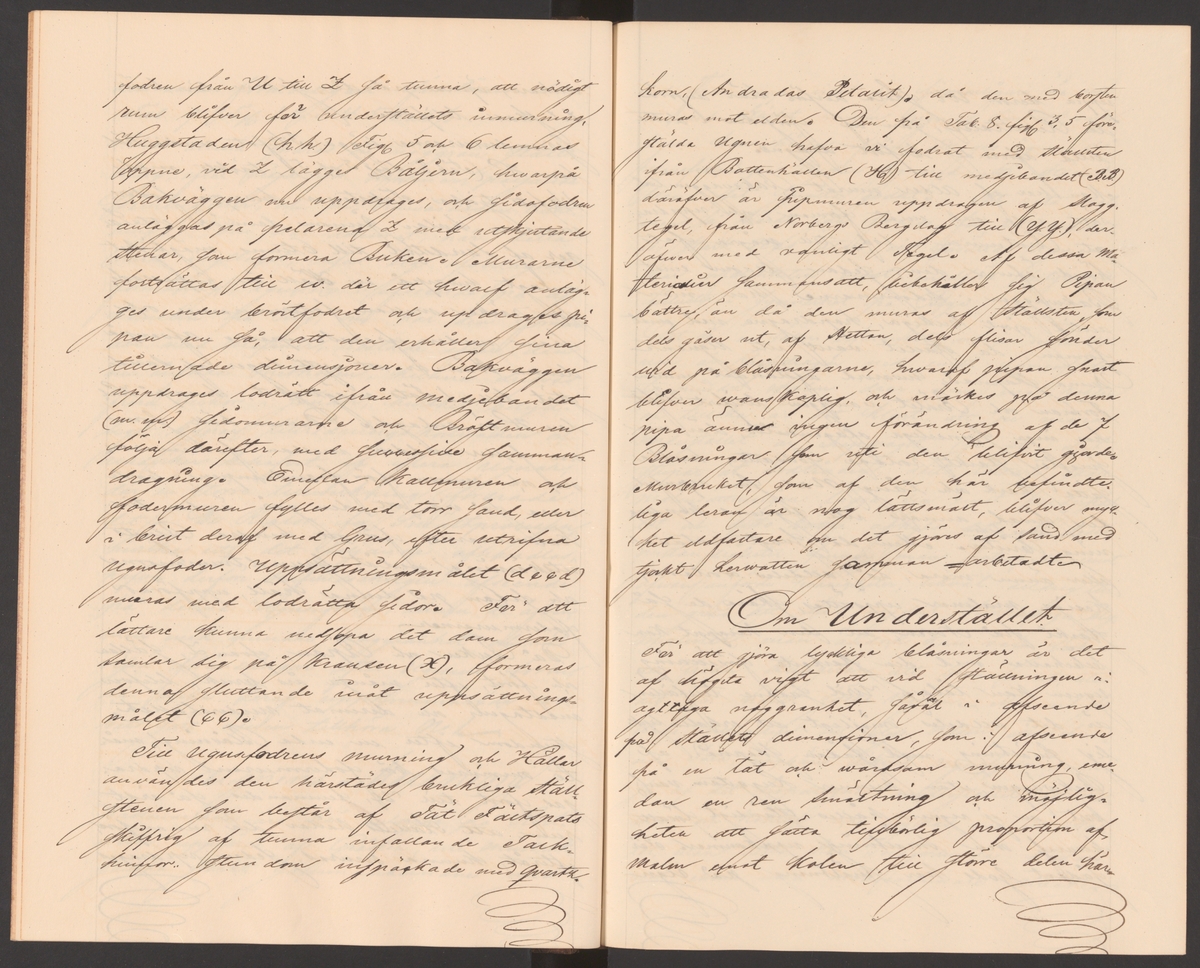 fodren från U till Z så tunna, att nödigt
rum blifver för understållets inmurning.
Huggstaden (h.h) Fig. 5 och 6 lemnas
öppne, vid Z lägges Båljern, hwarpå
Bakväggen nu uppdrages, och sidofodren
anläggas på pelarena Z med utskjutande
stenar, som formera Buken. Murarne
fortsättas till w. där ett hwalf anläg-
ges under bröstfodret och updrages pi-
pan nu så, att den erhåller sina
tillernade dimensjoner. Bakväggen
uppdrages lodrätt ifrån medjebandet
(m. m) Sidomurarne och Bröstmuren
följa därefter, med successive samman-
dragning. Emellan Kallmuren och
fodermuren fylles med torr sand, eller
i brist deraf med Grus, efter utrifna
ugnsfoder. Uppsättningsmålet (d e e d)
muras med lodrätta sidor. För att
lättare kunna nedsopa det dam som
samlar sig på Kransen (X), formeras
denna sluttande inåt uppsättnings-
målet (e e).
Till ugnsfodrens murning och Hällar
användes den härstädes brukliga Ställ-
stenen som består af Tät Fältspats
skiffrig af tunna infallande Talk-
skifvor. Stundom inspäckade med Quartz-
korn, (Andradas Petalit). då den med borsten
muras mot elden. Den på Tab. 8. fig. 3, 5 före-
stälda Ugnen hafva vi fodrat med Ställsten
ifrån Bottenhällen (Hq) till medjebandet (B.B)
däröfver är Pipmuren uppdragen af Slagg-
tegel, från Norbergs Bergslag till (YY), der-
öfver med vanligt Tegel. Af dessa Ma-
terialier sammansatt, bibehåller sig Pipan
bättre, än då den muras af Ställsten, som
dels gäser ut, af Hettan, dels flisar sönder
vid på blåsningarne, hwaraf pipan snart
blifver wanskaplig, och märkes på denna
pipa ännu ingen förändring af de 7
Blåsningar som uti den blifvit gjorde.
Murbruket, som af den här befindte-
liga leran är nog lättsmält, blifver myc-
ket eldfastare om det gjöres af Sand med
tjockt lervatten samman-arbetadt.
Om Understället
För att gjöra lyckliga blåsningar är det
af högsta vigt att vid ställningen i-
agttaga noggranhet, såväl i afseende
på ställets dimensioner, som i afseende
på en tät och wårdsam murning, eme-
dan en ren smältning och möjlig-
heten att sätta tillbörlig proportion af
Malm emot Kolen till större delen här-